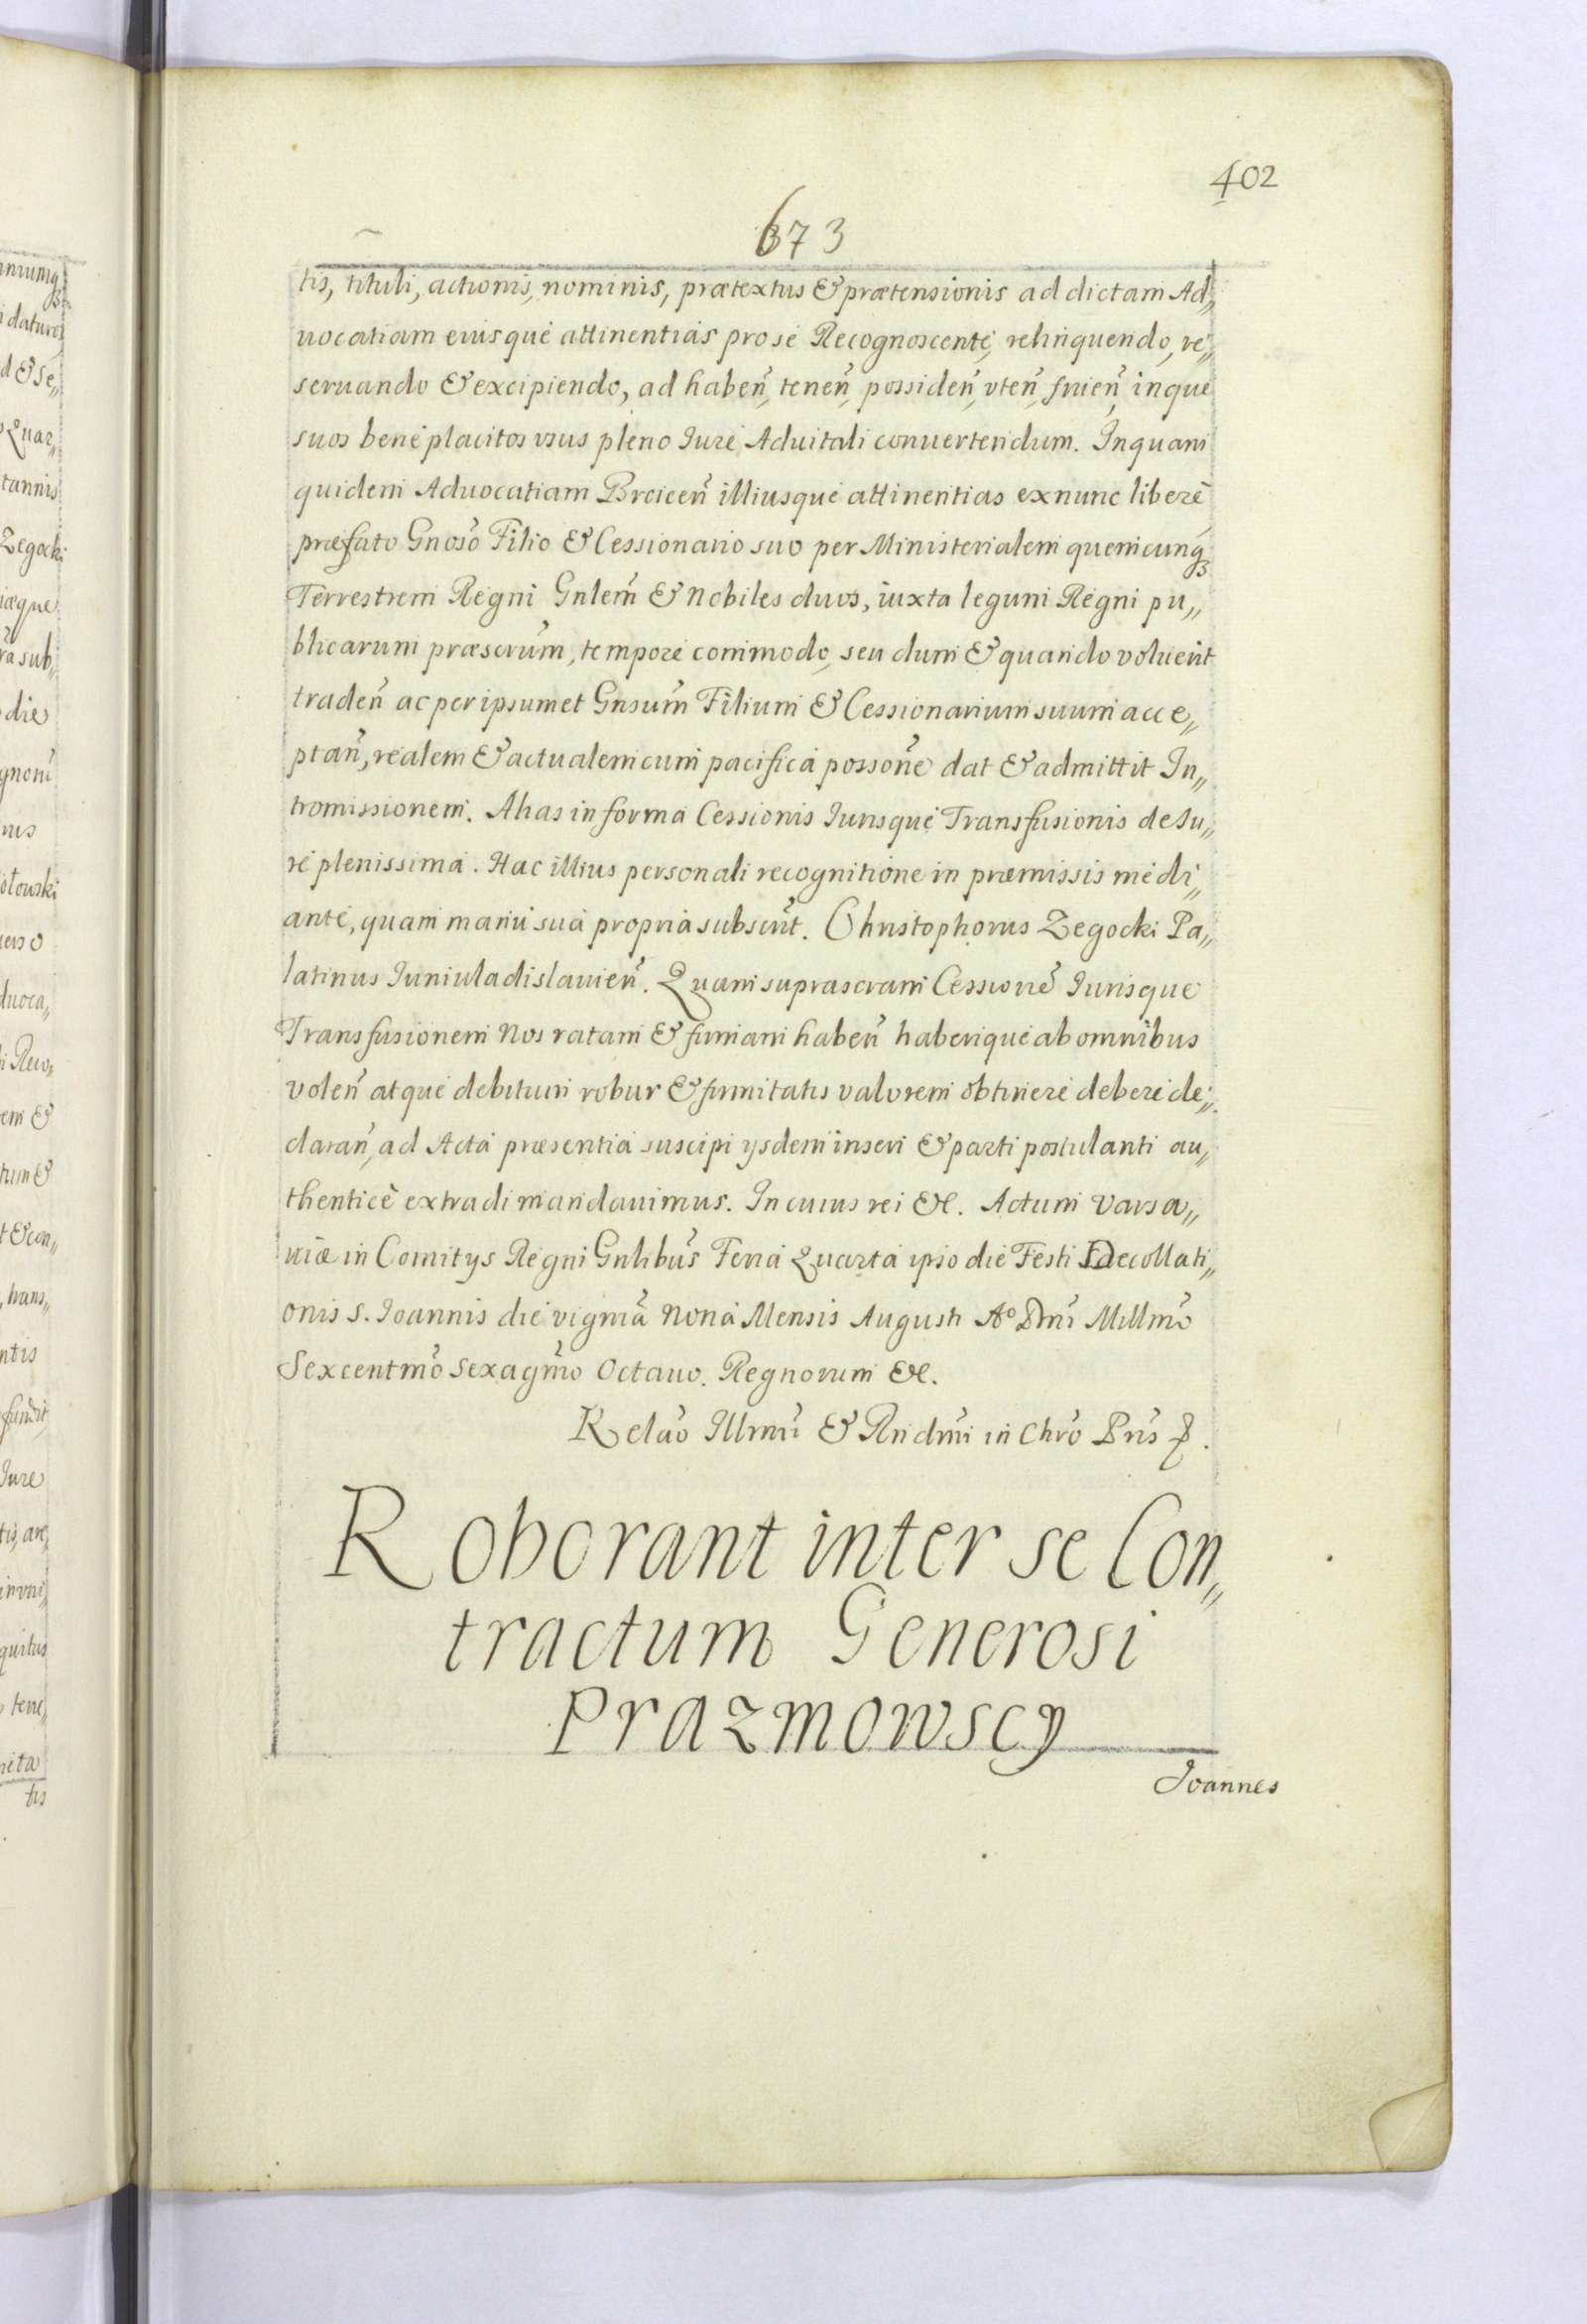 402
673
tis, tituli, actionis, nominis, prætextus & prætensionis ad dictam Ad„
uocatiam eiusque attinentias pro se Recognoscente, relinquendo, re„
seruando & excipiendo, ad habeñ, teneñ, possideñ, vteñ, frueñ, inque
suos beneplacitos vsus pleno Iure Aduitali conuertendum. In quam
quidem Aduocatiam Brciceñ illiusque attinentias ex nunc liberè
præfato Gnoso Filio & Cessionario suo per Ministerialem quemcunqȝ
Terrestrem Regni Gnlem̃ & Nobiles duos, iuxta legum Regni pu„
blicarum præscrum̃, tempore commodo, seu dum & quando voluerit
tradeñ ac per ipsummet Gnsum̃ Filium & Cessionarium suum acce„
ptañ, realem & actualem cum pacifica possone dat & admittit In„
tromissionem. Alias in forma Cessionis Iurisque Transfusionis de Iu„
re plenissima. Hac illius personali recognitione in præmissis medi„
ante, quam manu sua propria subscrit. Christophorus Zegocki Pa„
latinus Iuniuladislauieñ. Quam suprascram Cessione Iurisque
Transfusionem Nos ratam & firmam habeñ haberique ab omnibus
voleñ atque debitum robur & firmitatis valorem obtinere debere de„
clarañ, ad Acta præsentia suscipi ysdem inseri & parti postulanti au„
thenticè extradi mandauimus. In cuius rei &c. Actum Varsa„
uiæ in Comitys Regni Gnlibus Feria Quarta ipso die Festi Decollati„
onis S. Ioannis die vigma Nona Mensis Augusti Aº Dni Millmo
Sexcentmo Sexagmo Octauo. Regnorum &c.
Relao Illmi & Rndmi in Chro Pris
Roborant inter se Con„
tractum Generosi
Prazmowscy
Joannes